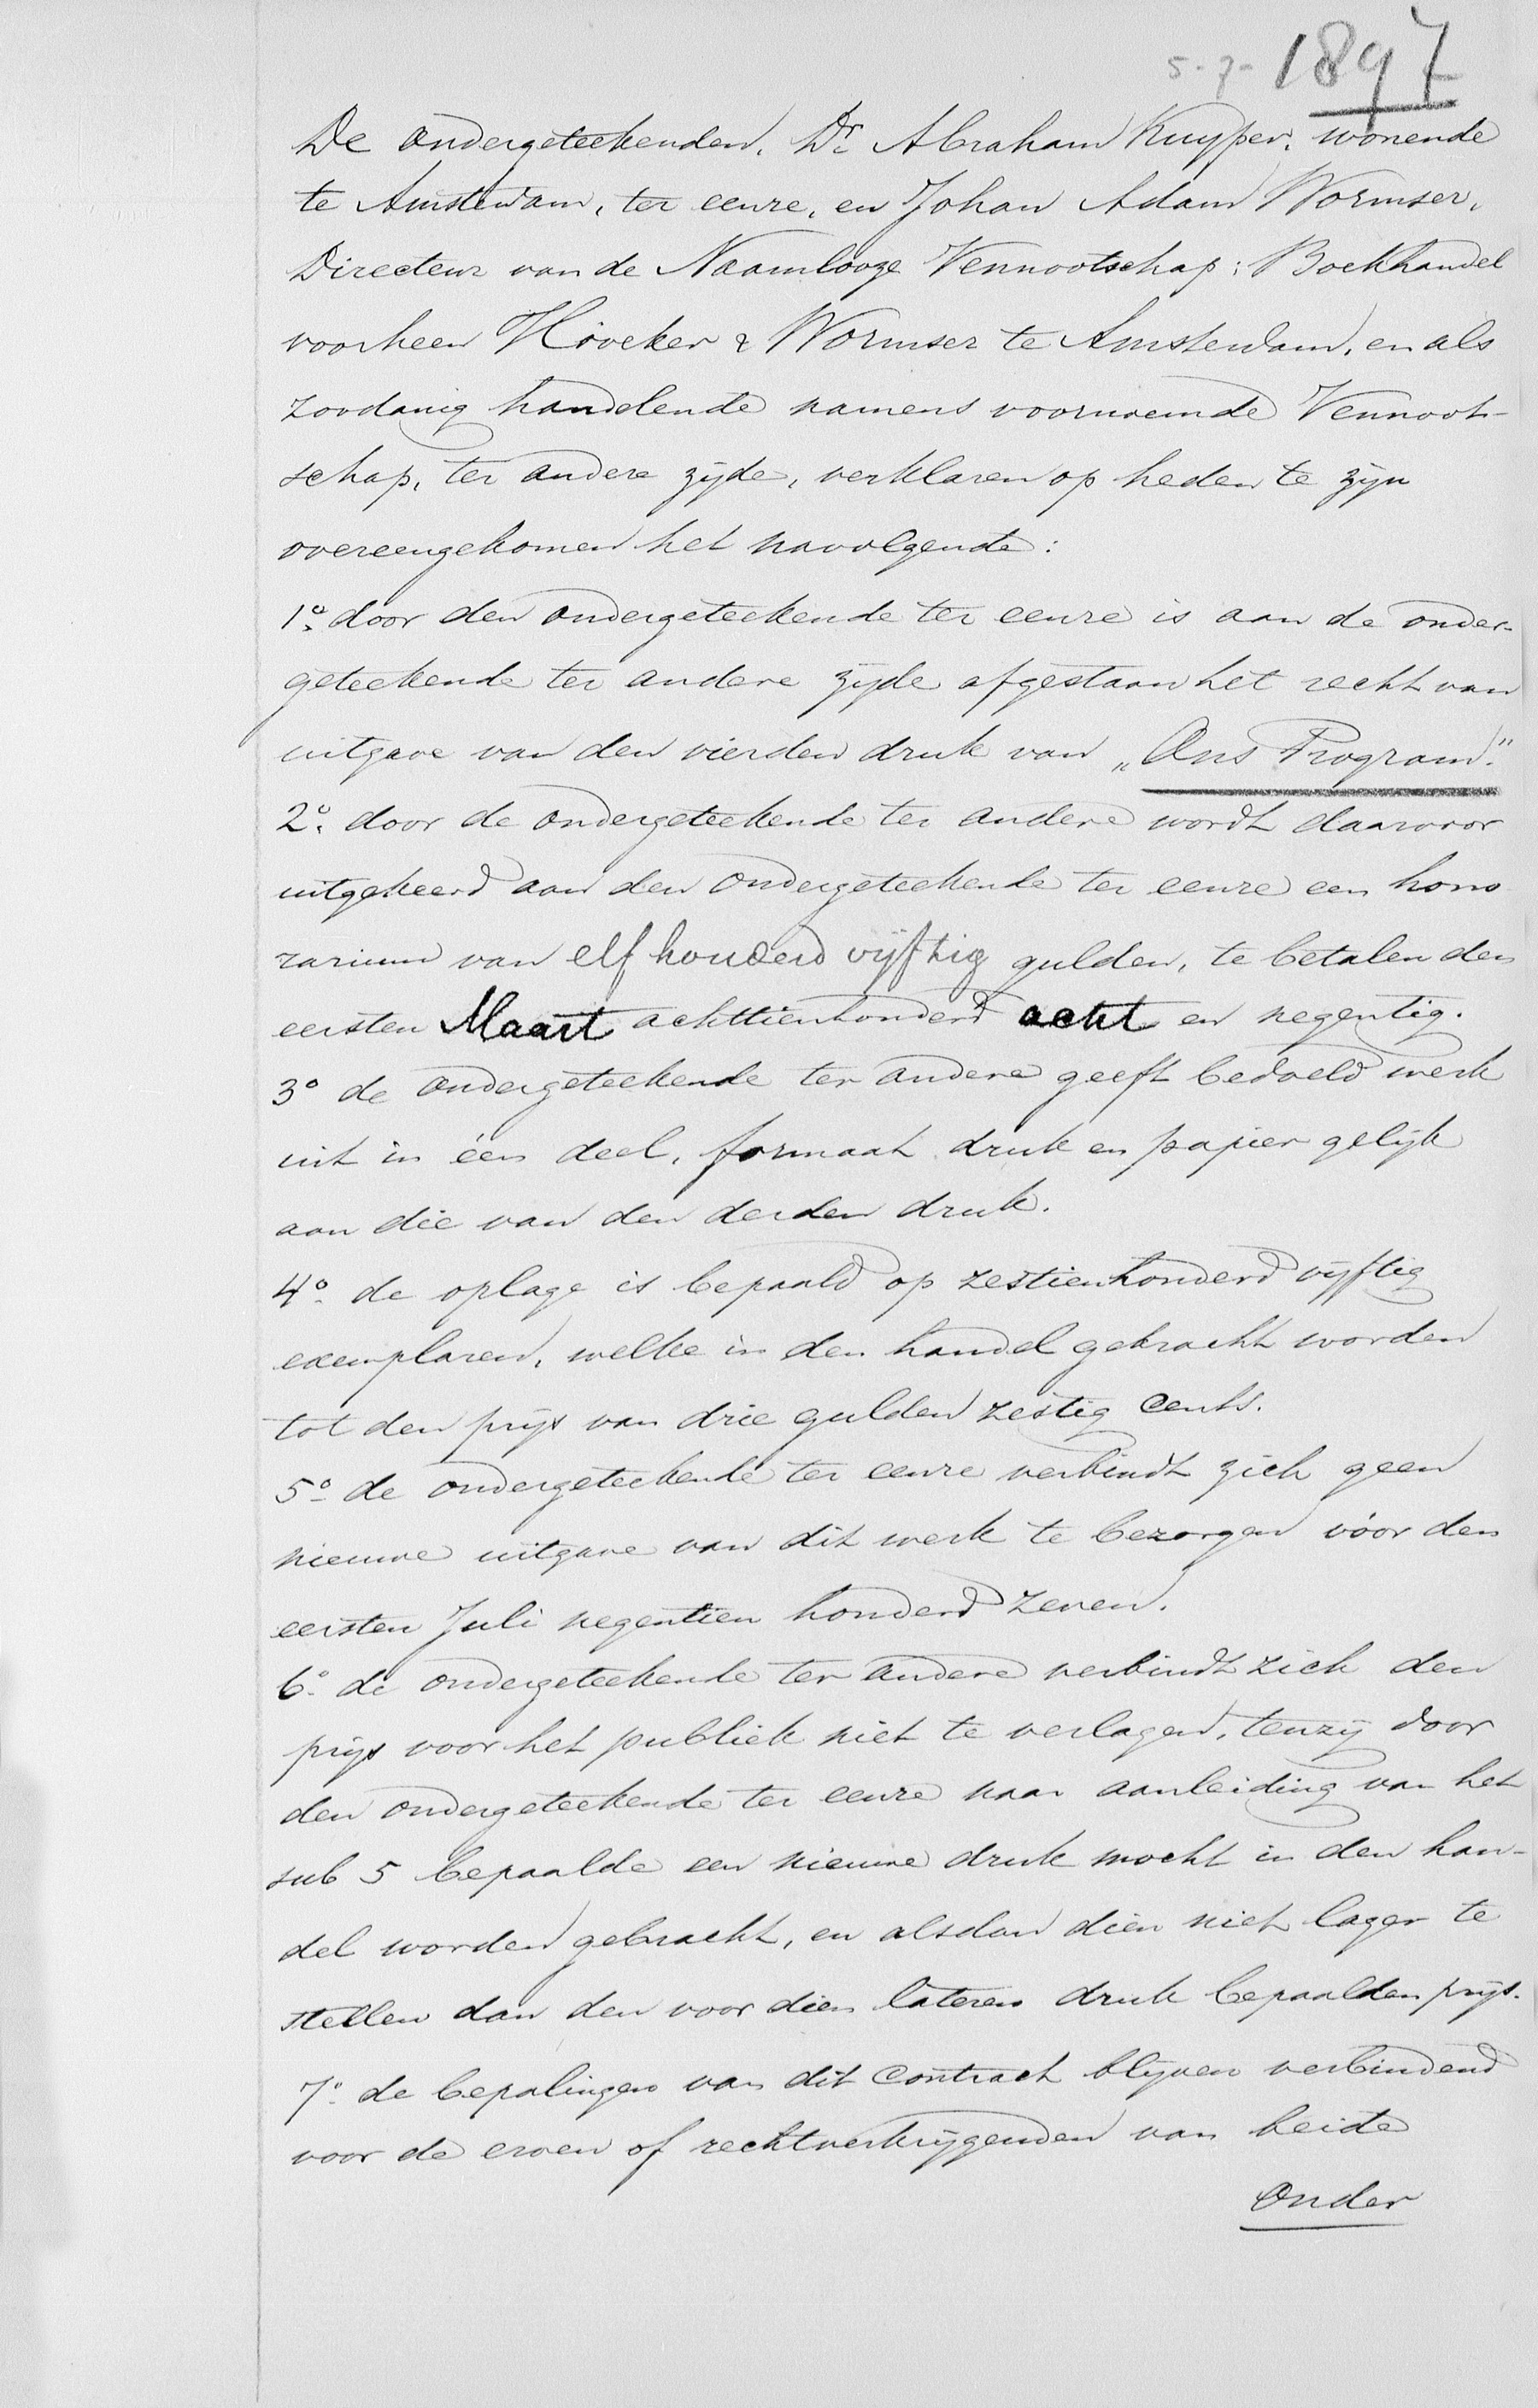 5-7-1897
De ondergeteekenden, Dr. Abraham Kuyper, wonende
te Amsterdam, ter eenre, en Johan Adam Wormser,
Directeur van de Naamlooze Vennootschap: Boekhandel
voorheen Höveker & Wormser te Amsterdam, en als
zoodanig handelende namens voornoemde Vennoot-
schap, ter andere zijde, verklaren op heden te zijn
overeengekomen het navolgende:
1o. door den ondergeteekende ter eenre is aan de onder-
geteekende ter andere zijde afgestaan het recht van
uitgave van den vierden druk van „Ons Program."
2o. door de ondergeteekende ter andere wordt daarvoor
uitgekeerd aan den ondergeteekende ter eenre een hono
rarium van elf honderd vijftig gulden, te betalen den
eersten Maart achttienhonderd acht en negentig.
3o de ondergeteekende ter andere geeft bedoeld werk
uit in één deel, formaat druk en papier gelijk
aan die van den derden druk.
4o. de oplage is bepaald op zestienhonderd vijftig
exemplaren, welke in den handel gebracht worden
tot den prijs van drie gulden zestig cents.
5o. de ondergeteekende ter eenre verbindt zich geen
nieuwe uitgave van dit werk te bezorgen vóor den
eersten Juli negentien honderd zeven.
6o. de ondergeteekende ter andere verbindt zich den
prijs voor het publiek niet te verlagen, tenzij door
den ondergeteekende ter eenre naar aanleiding van het
sub 5 bepaalde een nieuwe druk mocht in den han-
del worden gebracht, en alsdan dien niet lager te
stellen dan den voor dien lateren druk bepaalden prijs.
7o. de bepalingen van dit contract blijven verbindend
voor de erven of rechtverkrijgenden van beide
Onder